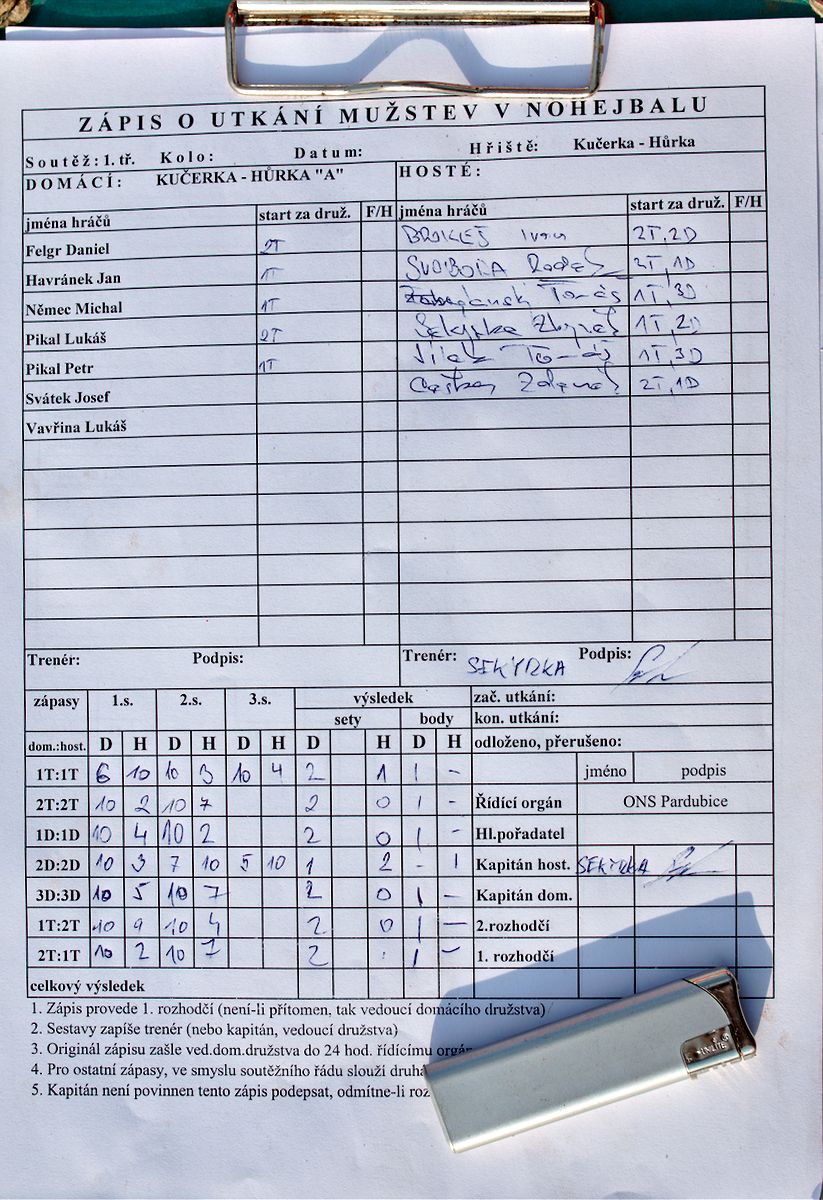 ZÁPIS O UTKÁNÍ MUŽSTEV V NOHEJBALU
Soutěž: 1. tř. Kolo: Datum: Hřiště: Kučerka - Hůrka
DOMÁCÍ: KUČERKA - HŮRKA "A" HOSTÉ:
jména hráčů start za druž. F/H jména hráčů start za druž. F/H
Felgr Daniel 2T BROKEŠ Ivan 2T, 2D
Havránek Jan 1T SVOBODA Radek 2T, 1D
Němec Michal 1T Tomáš 1T, 3D
Pikal Lukáš 2T Sekyrka Zbyněk 1T, 2D
Pikal Petr 1T Tomáš 1T, 3D
Svátek Josef Zdeněk 2T, 1D
Vavřina Lukáš
Trenér: Podpis: Trenér: SEKYRKA Podpis:
zápasy 1.s. 2.s. 3.s. výsledek zač. utkání:
sety body kon. utkání:
dom.:host. D H D H D H D H D H odloženo, přerušeno:
1T:1T 6 10 10 3 10 4 2 1 1 - jméno podpis
2T:2T 10 2 10 7 2 0 1 - Řídící orgán ONS Pardubice
1D:1D 10 4 10 2 2 0 1 - Hl.pořadatel
2D:2D 10 3 7 10 5 10 1 2 - 1 Kapitán host. SEKYRKA
3D:3D 10 5 10 7 2 0 1 - Kapitán dom.
1T:2T 10 9 10 4 2 0 1 - 2.rozhodčí
2T:1T 10 2 10 7 2 1 - 1. rozhodčí
celkový výsledek
1. Zápis provede 1. rozhodčí (není-li přítomen, tak vedoucí domácího družstva)
2. Sestavy zapíše trenér (nebo kapitán, vedoucí družstva)
3. Originál zápisu zašle ved.dom.družstva do 24 hod. řídícímu orgán
4. Pro ostatní zápasy, ve smyslu soutěžního řádu slouží druh
5. Kapitán není povinnen tento zápis podepsat, odmítne-li roz